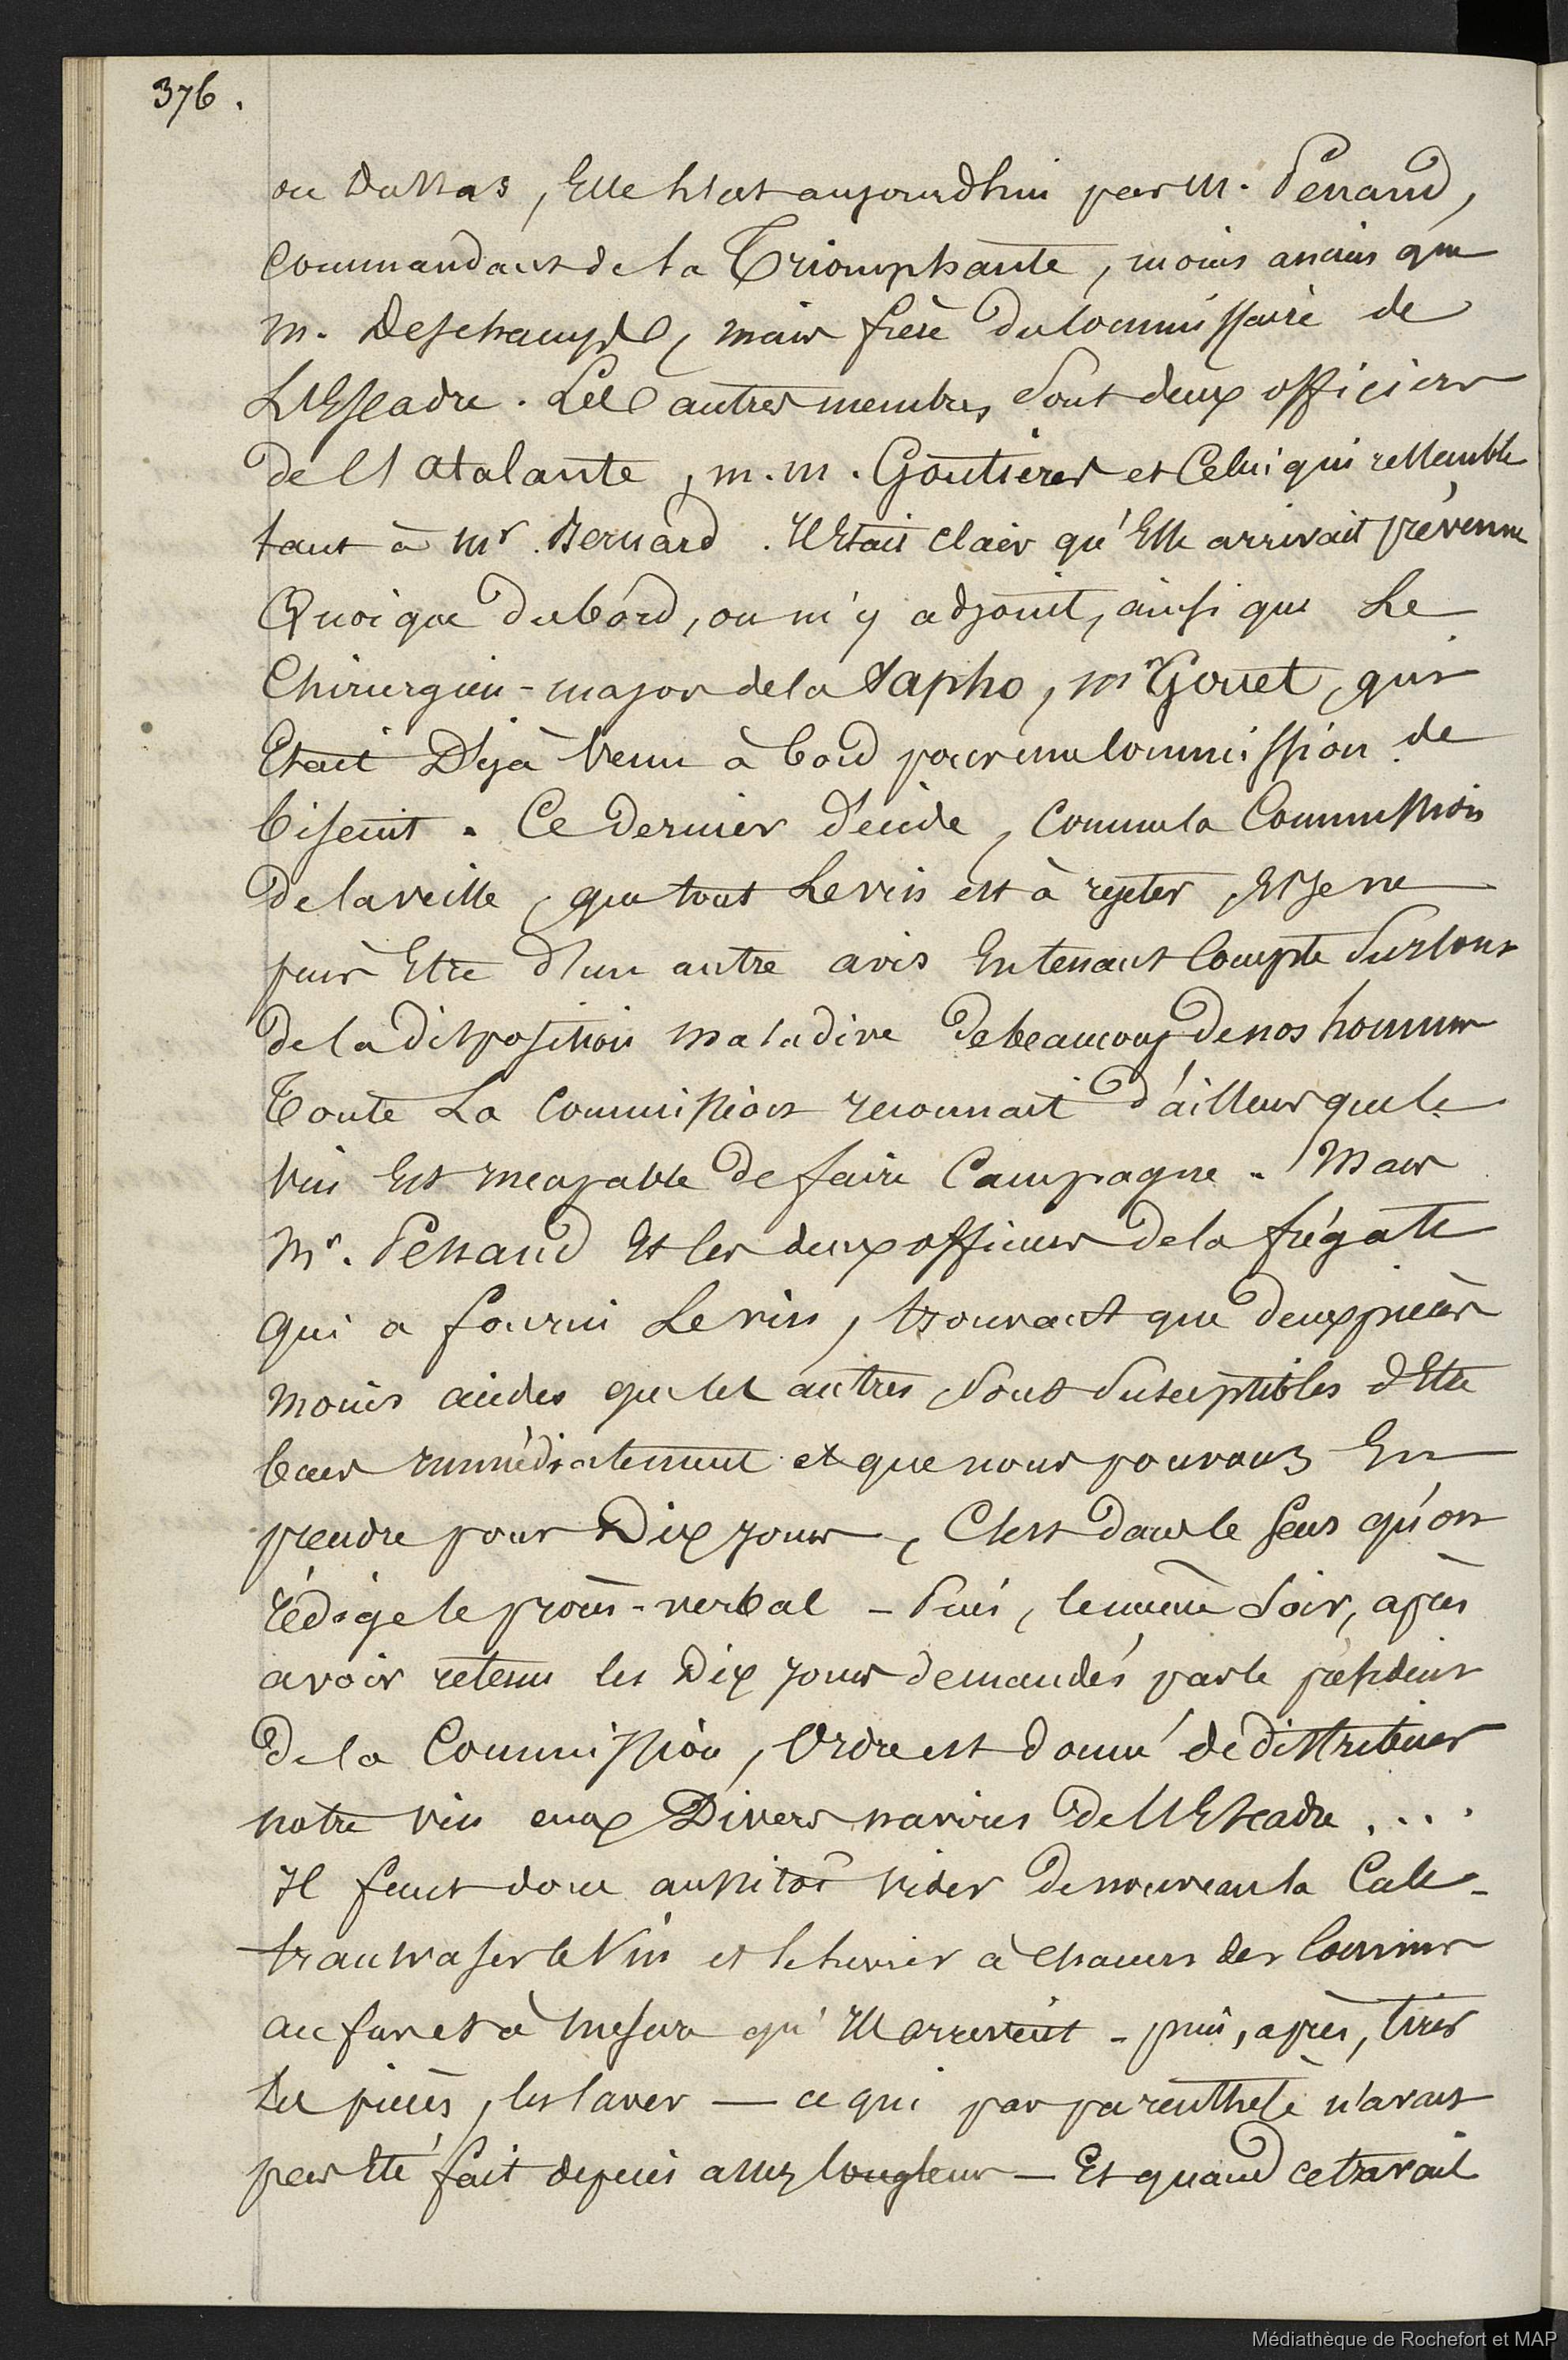 376.
ou Dumas, Elle l'est aujourdhui par M. Penaud,
Commandant de la Triomphante, moins ancien que
M. Deschamps, mais frère du Commissaire de
L'Escadre. Les autres membres Sont deux officiers
de l'Atalante, M.M. Goutières et Celui qui ressemble
tant à Mr. Bernard. Il Etait clair qu'Elle arrivait prévenue
Quoique du bord, on m'y adjoint, ainsi que Le
Chirurgien-major de la Sapho, Mr Gouet, qui
Etait Déjà Venu à bord pour une Commission de
biscuit. Ce dernier décide, Comme la Commission
De la veille, que tout Le vin est à rejeter, Et Je ne
puis Etre d'un autre avis En tenant Compte Surtout
de la disposition maladive De beaucoup de nos hommes
Toute La Commission reconnait d'ailleurs que le
Vin Est incapable De faire Campagne. Mais
Mr. Penaud Et les deux officiers de la frégate
qui a fourni Le vin, trouvant que deux pièces
moins acides que les autres Sont Susceptibles d'Etre
bues immédiatement et que nous pouvons En
prendre pour Dix jours, C'est dans le Sens qu'on
rédige le procès-verbal - Puis, le même Soir, après
avoir retenu les Dix jours demandés par le président
De la Commission, Ordre est donné de distribuer
notre vin aux Divers navires de l'Escadre....
Il faut donc aussitôt Vider De nouveau la Cale -
transvaser le Vin et le livrer à chacun des Corvées
au fur et à mesure qu'Ils arrivent - puis, après, tirer
les pièces, les laver — ce qui par parenthèse n'avait
pas Eté fait depuis assez longtems — Et quand ce travail
Médiathèque de Rochefort et MAP